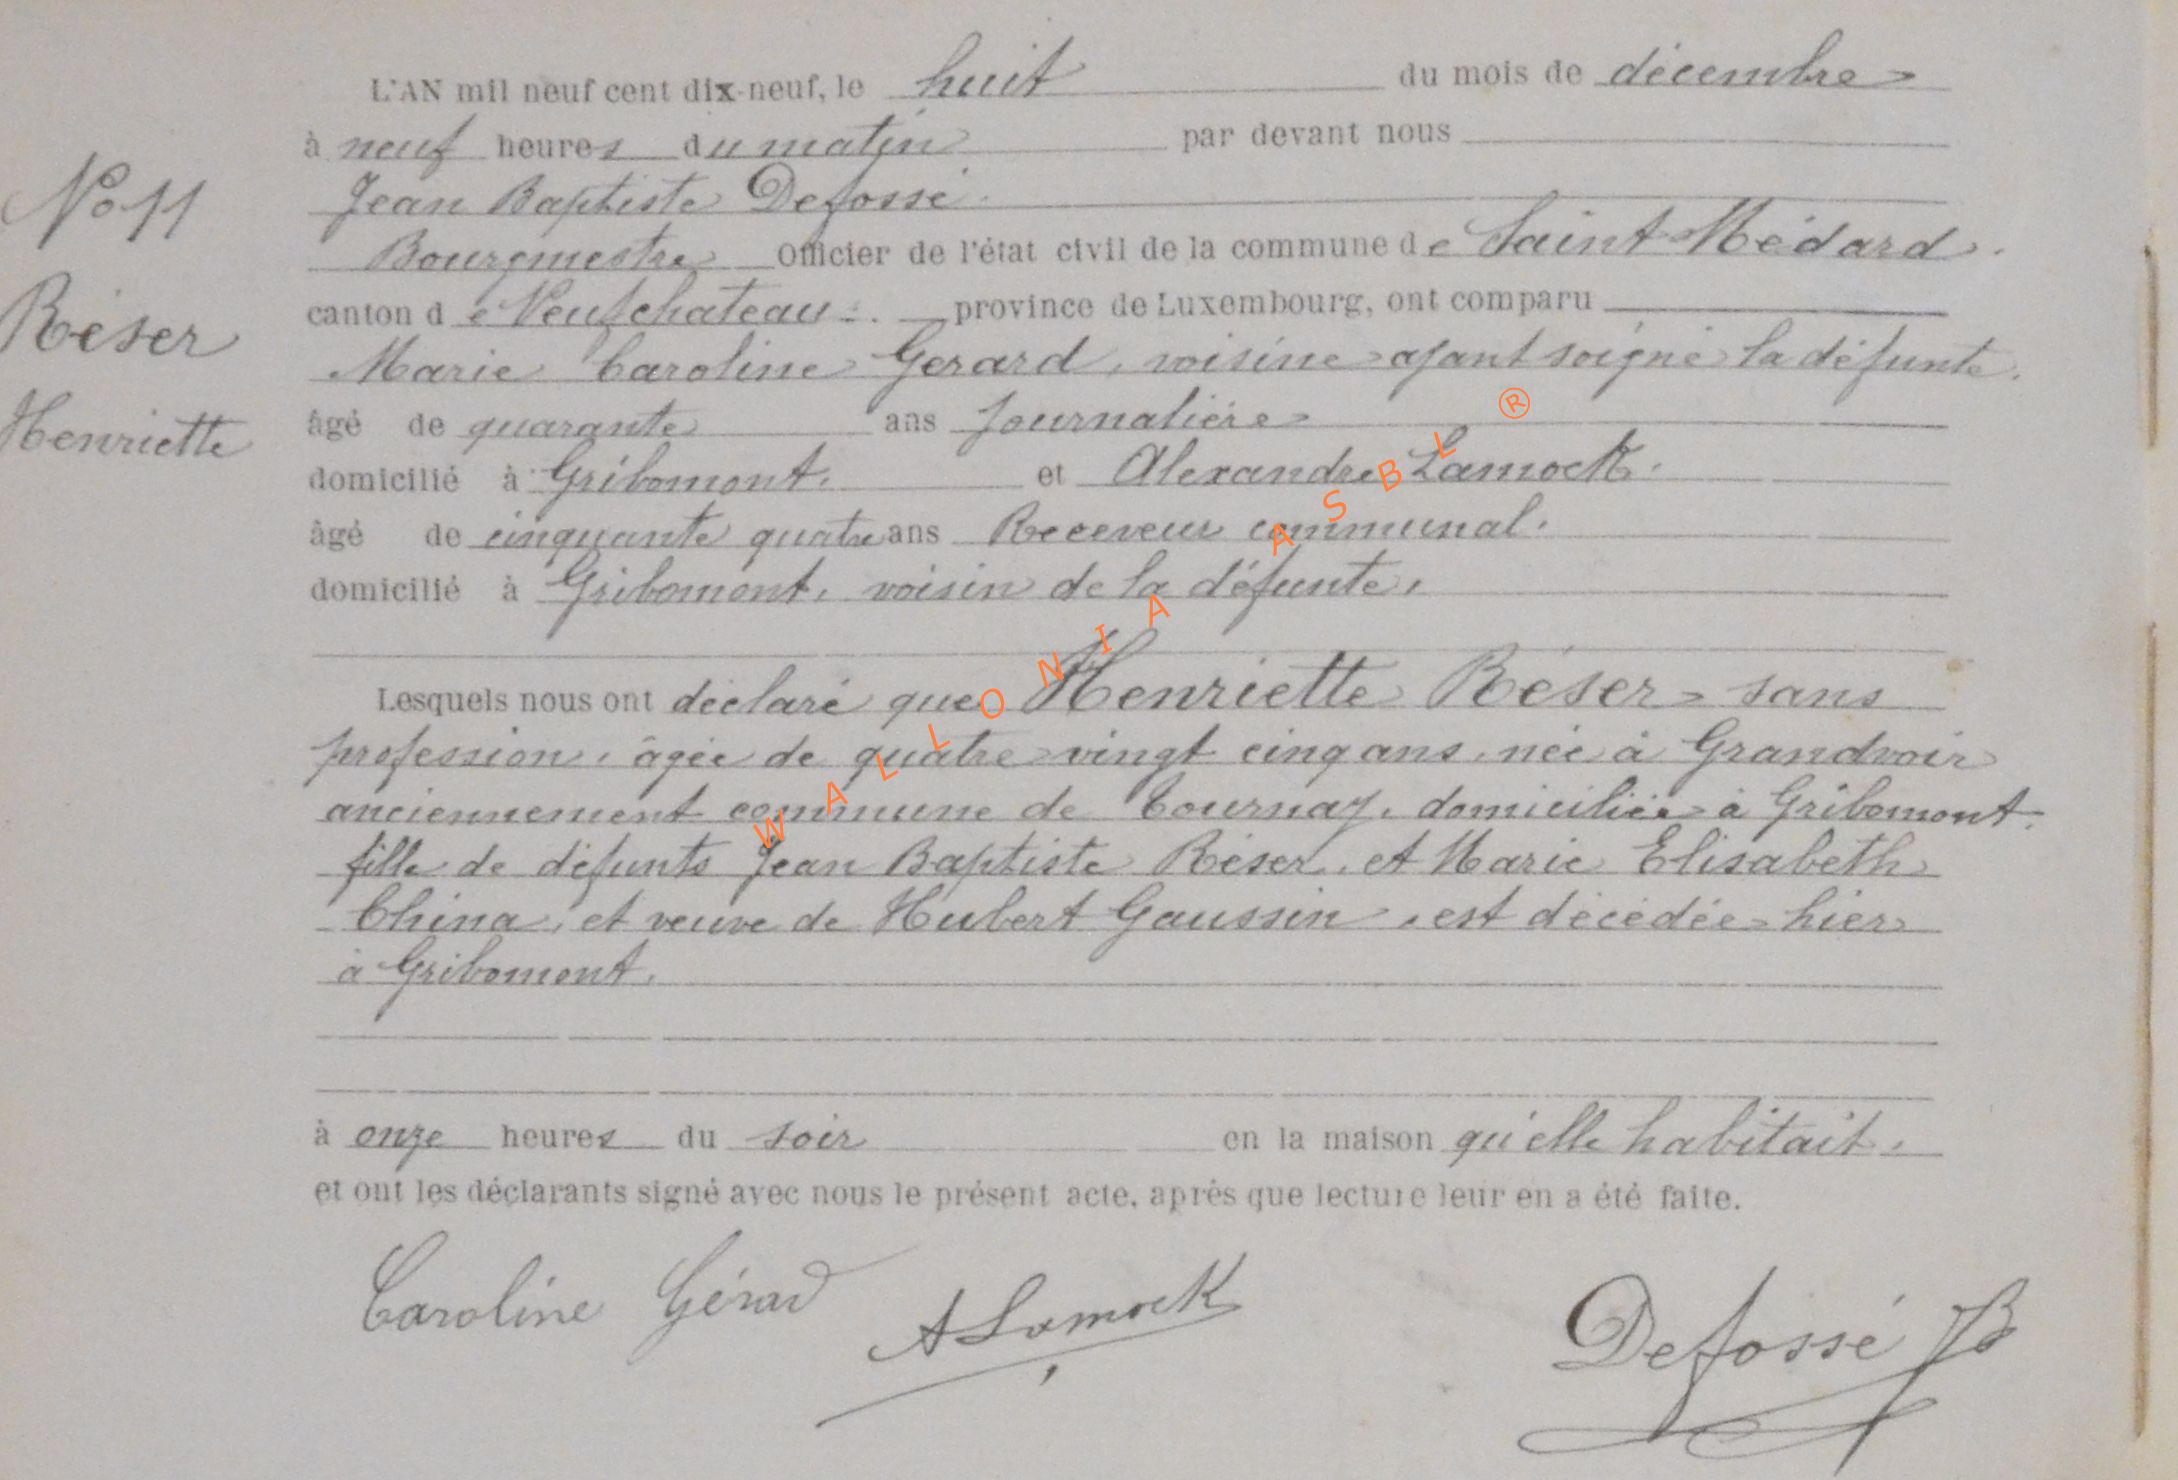 L'AN mil neuf cent dix-neuf, le huit du mois de décembre
à neuf heures du matin par devant nous
Jean Baptiste Defossé.
Bourgmestre Officier de l'état civil de la commune de Saint Médard.
canton de Neufchateau. province de Luxembourg, ont comparu
Marie Caroline Gerard, voisine ayant soigné la défunte.
âgé de quarante ans Journalière
domicilié à Gribomont. et Alexandre Lamock.
âgé de cinquante quatre ans Receveur communal.
domicilié à Gribomont, voisin de la défunte.
Lesquels nous ont déclaré que Henriette Réser sans
profession, âgée de quatre vingt cinq ans, née à Grandvoir
anciennement commune de Tournay, domiciliée à Gribomont.
fille de défunts Jean Baptiste Réser, et Marie Elisabeth
China, et veuve de Hubert Gaussin, est décédée hier
à Gribomont.
à onze heures du soir en la maison qu'elle habitait.
et ont les déclarants signé avec nous le présent acte, après que lecture leur en a été faite.
Caroline Gérad
A Lamock
Defossé JB
No 11
Réser
Henriette
WALLONIA ASBL ®